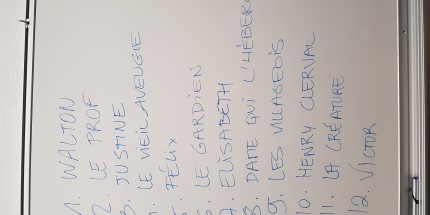 1. WALTON
2. LE PROF
3. JUSTINE
LE VIEIL AVEUGLE
FÉLIX
6. LE GARDIEN
7. ELISABETH
8. DAME QUI L'HÉBER
9. LES VILLAGEOIS
10. HENRY CLERVAL
11. LA CRÉATURE
12. VICTOR